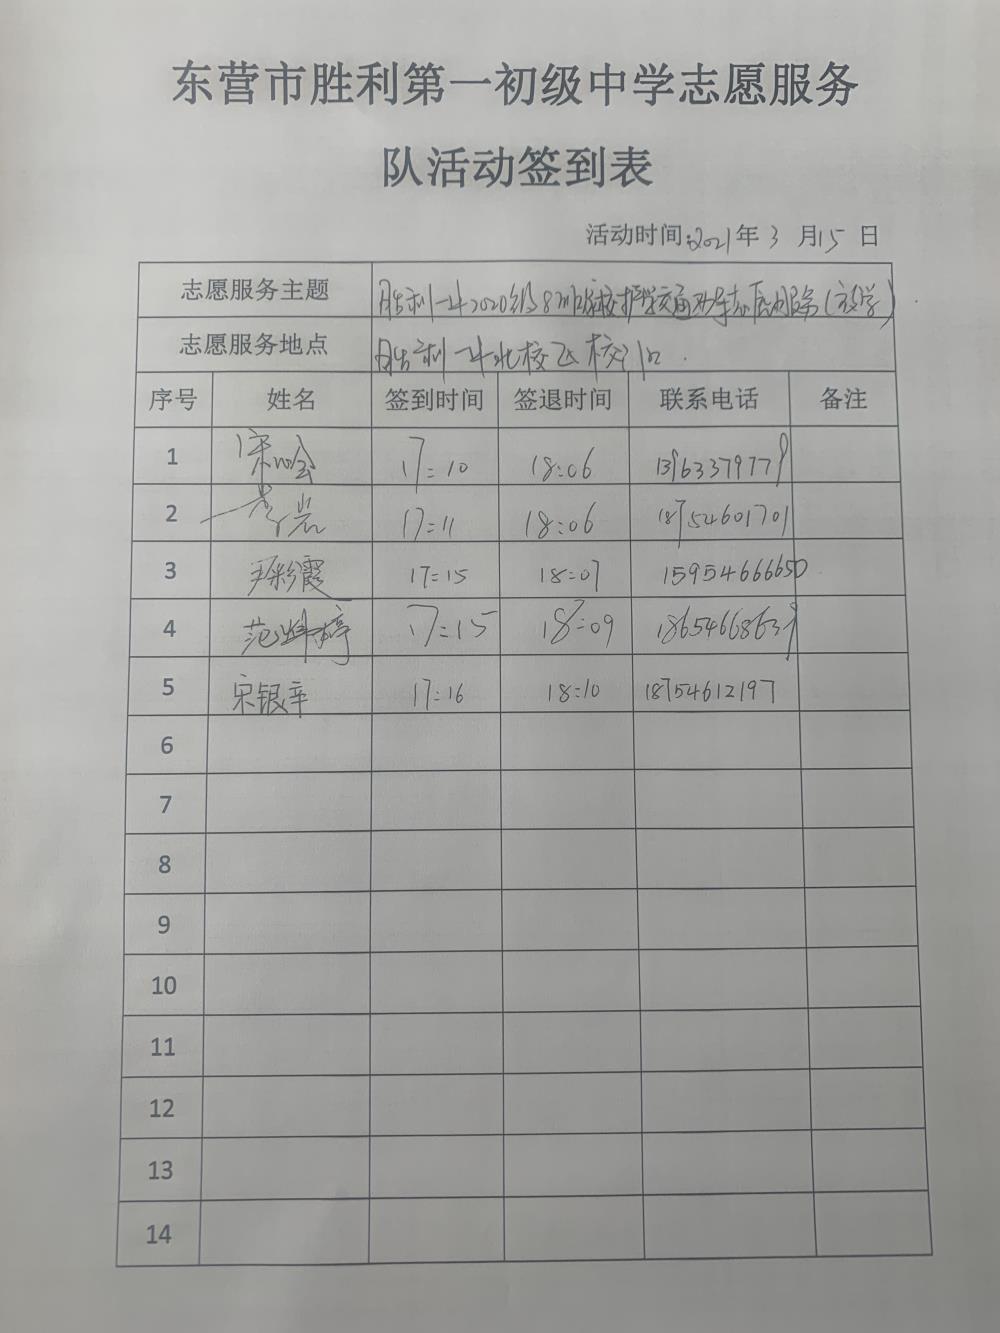 东营市胜利第一初级中学志愿服务
队活动签到表
活动时间:2021年3月15日
志愿服务主题 胜利一中2020级8班家校护学交通劝导志愿服务(放学)
志愿服务地点 胜利一中北校区校门口.
序号 姓名 签到时间 签退时间 联系电话 备注
1 宋晗 17:10 18:06 13963379779
2 李岩 17:11 18:06 18754601701
3 尹彩霞 17:15 18:07 15954666650
4 范婷 17:15 18:09 18654668639
5 宋银辛 17:16 18:10 18754612197
6
7
8
9
10
11
12
13
14